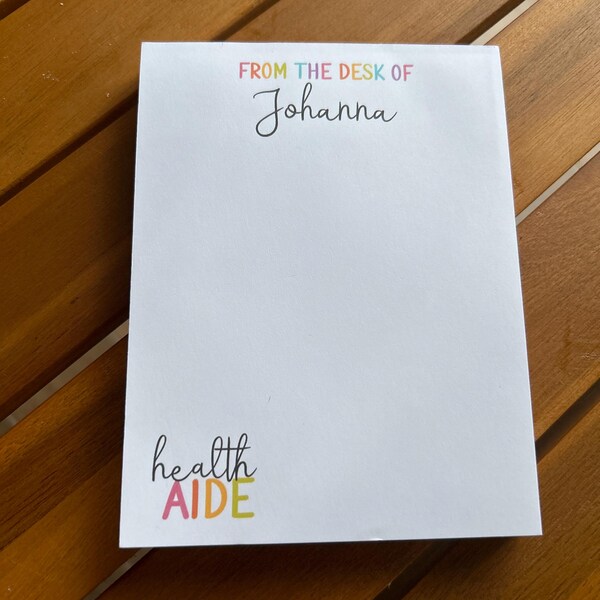 FROM THE DESK OF
Johanna
health
AIDE